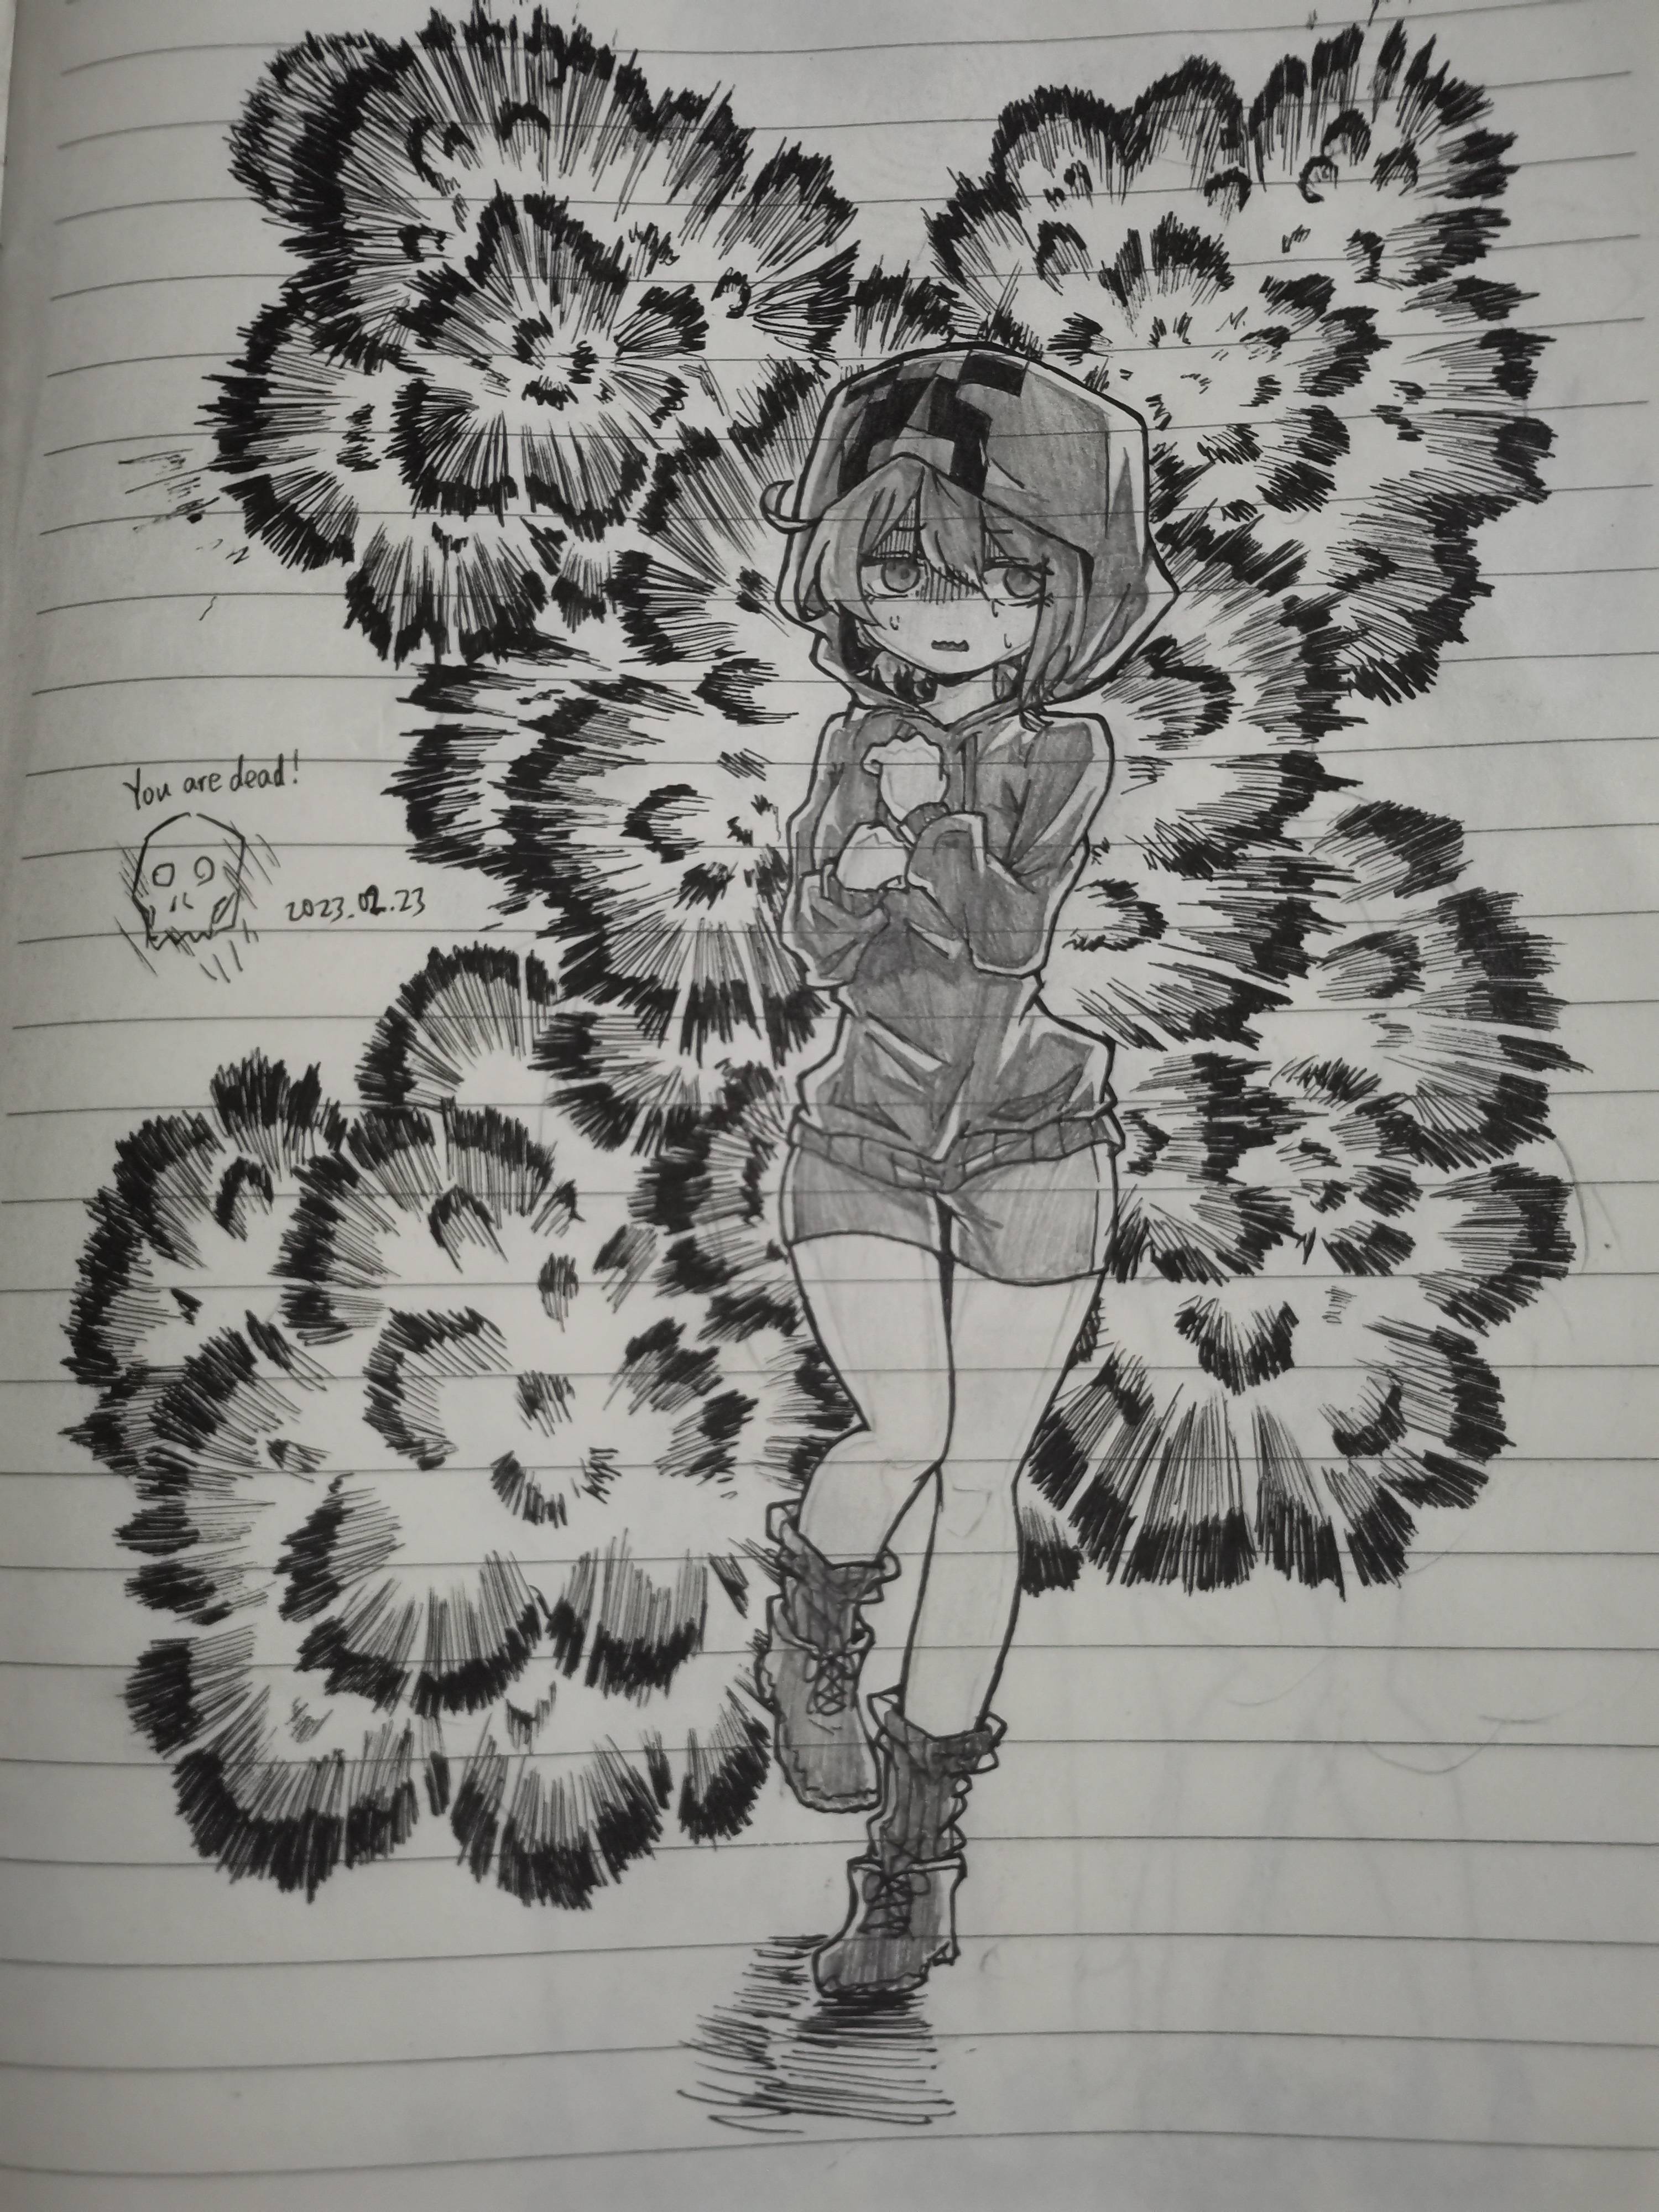 You are dead!
2023.02.23